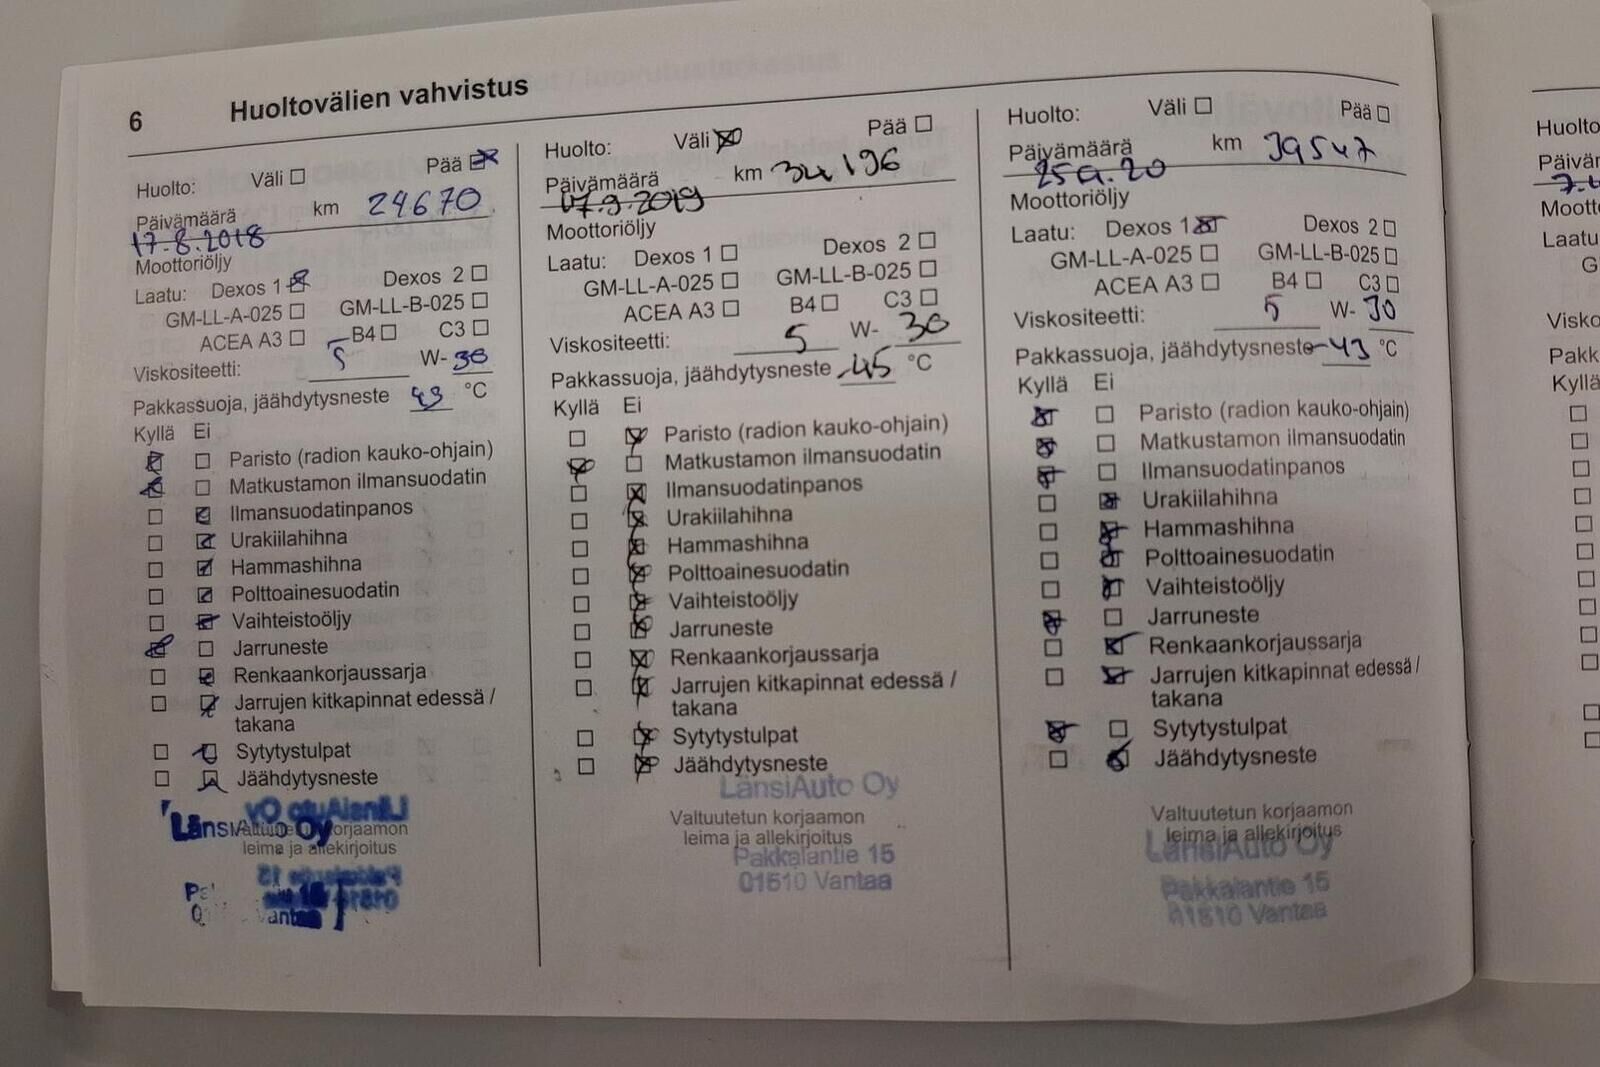 6 Huoltovälien vahvistus
Huolto: Väli Pää
Päivämäärä km 24670
17.8.2018
Moottoriöljy
Laatu: Dexos 1 Dexos 2
GM-LL-A-025 GM-LL-B-025
ACEA A3 B4 C3
Viskositeetti: 5 W-30
Pakkassuoja, jäähdytysneste 43 °C
Kyllä Ei
Paristo (radion kauko-ohjain)
Matkustamon ilmansuodatin
Ilmansuodatinpanos
Urakiilahihna
Hammashihna
Polttoainesuodatin
Vaihteistoöljy
Jarruneste
Renkaankorjaussarja
Jarrujen kitkapinnat edessä /
takana
Sytytystulpat
Jäähdytysneste
LänsiAuto Oy
korjaamon
leima ja allekirjoitus
Huolto: Väli Pää
Päivämäärä km 34196
07.9.2019
Moottoriöljy
Laatu: Dexos 1 Dexos 2
GM-LL-A-025 GM-LL-B-025
ACEA A3 B4 C3
Viskositeetti: 5 W-30
Pakkassuoja, jäähdytysneste -45 °C
Kyllä Ei
Paristo (radion kauko-ohjain)
Matkustamon ilmansuodatin
Ilmansuodatinpanos
Urakiilahihna
Hammashihna
Polttoainesuodatin
Vaihteistoöljy
Jarruneste
Renkaankorjaussarja
Jarrujen kitkapinnat edessä /
takana
Sytytystulpat
Jäähdytysneste
LänsiAuto Oy
Valtuutetun korjaamon
leima ja allekirjoitus
Pakkalantie 15
01510 Vantaa
Huolto: Väli Pää
Päivämäärä km 39547
Moottoriöljy
Laatu: Dexos 1 Dexos 2
GM-LL-A-025 GM-LL-B-025
ACEA A3 B4 C3
Viskositeetti: 5 W-30
Pakkassuoja, jäähdytysneste -43 °C
Kyllä Ei
Paristo (radion kauko-ohjain)
Matkustamon ilmansuodatin
Ilmansuodatinpanos
Urakiilahihna
Hammashihna
Polttoainesuodatin
Vaihteistoöljy
Jarruneste
Renkaankorjaussarja
Jarrujen kitkapinnat edessä /
takana
Sytytystulpat
Jäähdytysneste
Valtuutetun korjaamon
leima ja allekirjoitus
LänsiAuto Oy
Pakkalantie 15
01510 Vantaa
Huolto
Päivär
Moott
Laatu
G
Visko
Pakk
Kyllä